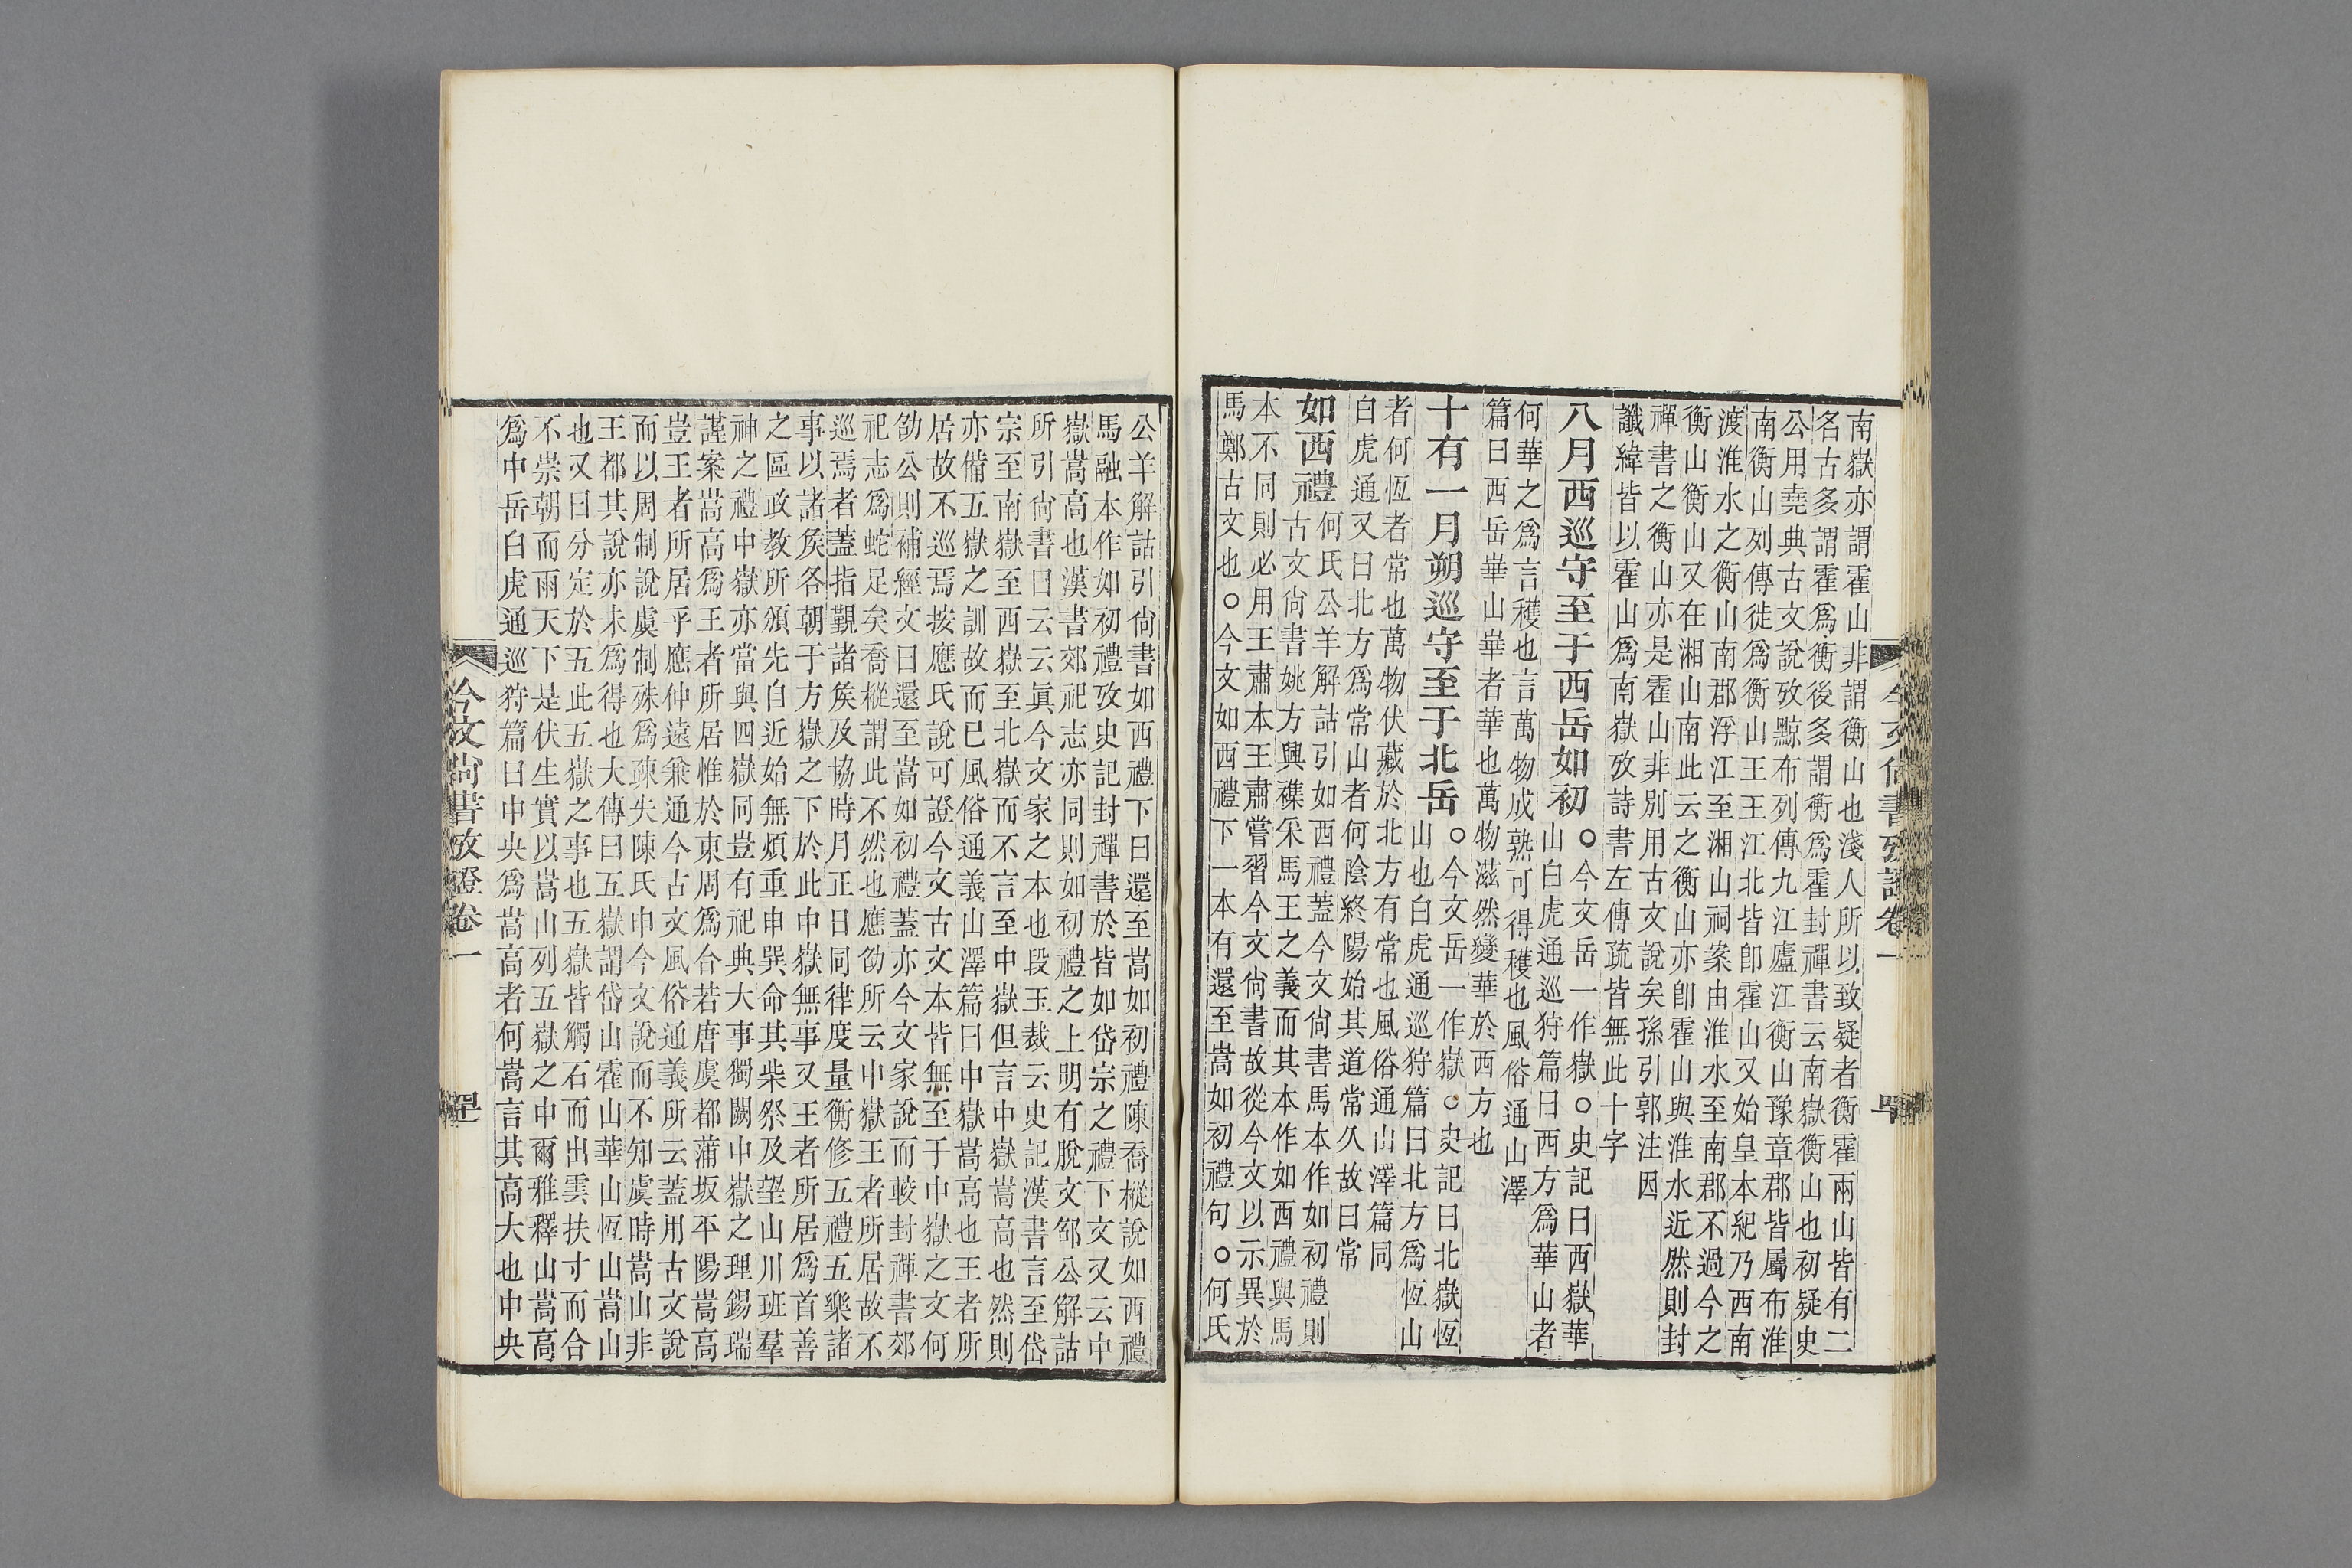 今文尚書攷證卷一
南嶽亦謂霍山非謂衡山也淺人所以致疑者衡霍兩山皆有二
名古多謂霍爲衡後多謂衡爲霍封禪書云南嶽衡山也初疑史
公用堯典古文說攷黥布列傳九江廬江衡山豫章郡皆屬布淮
南衡山列傳徙爲衡山王王江北皆卽霍山又始皇本紀乃西南
渡淮水之衡山南郡浮江至湘山祠案由淮水至南郡不過今之
衡山衡山又在湘山南此云之衡山亦卽霍山與淮水近然則封
禪書之衡山亦是霍山非別用古文說矣孫引郭注因
讖緯皆以霍山爲南嶽攷詩書左傳疏皆無此十字
八月西巡守至于西岳如初
〇今文岳一作嶽〇史記曰西嶽華
山白虎通巡狩篇曰西方爲華山者
何華之爲言穫也言萬物成熟可得穫也風俗通山澤
篇曰西岳華山華者華也萬物滋然變華於西方也
十有一月朔巡守至于北岳
〇今文岳一作嶽〇史記曰北嶽恆
山也白虎通巡狩篇曰北方爲恆山
者何恆者常也萬物伏藏於北方有常也風俗通山澤篇同
白虎通又曰北方爲常山者何陰終陽始其道常久故曰常
如西禮
何氏公羊解詁引如西禮蓋今文尚書馬本作如初禮則
古文尚書姚方興襍采馬王之義而其本作如西禮與馬
本不同則必用王肅本王肅嘗習今文尚書故從今文以示異於
馬鄭古文也〇今文如西禮下一本有還至嵩如初禮句〇何氏
公羊解詁引尚書如西禮下曰還至嵩如初禮陳喬樅說如西禮
馬融本作如初禮攷史記封禪書於皆如岱宗之禮下文又云中
嶽嵩高也漢書郊祀志亦同則如初禮之上明有脫文邵公解詁
所引尚書曰云云眞今文家之本也段玉裁云史記漢書言至岱
宗至南嶽至西嶽至北嶽而不言至中嶽但言中嶽嵩高也然則
亦備五嶽之訓故而已風俗通義山澤篇曰中嶽嵩高也王者所
居故不巡焉按應氏說可證今文古文本皆無至于中嶽之文何
劭公則補經文曰還至嵩如初禮蓋亦今文家說而較封禪書郊
祀志爲蛇足矣喬樅謂此不然也應劭所云中嶽王者所居故不
巡焉者蓋指覲諸侯及協時月正日同律度量衡修五禮五樂諸
事以諸侯各朝于方嶽之下於此中嶽無事又王者所居爲首善
之區政教所頒先自近始無煩重申巽命其柴祭及望山川班羣
神之禮中嶽亦當與四嶽同豈有祀典大事獨闕中嶽之理錫瑞
謹案嵩高爲王者所居惟於東周爲合若唐虞都蒲坂平陽嵩高
豈王者所居乎應仲遠兼通今古文風俗通義所云蓋用古文說
而以周制說虞制殊爲疎失陳氏申今文說而不知虞時嵩山非
王都其說亦未爲得也大傳曰五嶽謂岱山霍山華山恆山嵩山
也又曰分定於五此五嶽之事也五嶽皆觸石而出雲扶寸而合
不崇朝而雨天下是伏生實以嵩山列五嶽之中爾雅釋山嵩高
爲中岳白虎通巡狩篇曰中央爲嵩高者何嵩言其高大也中央
今文尚書攷證卷一